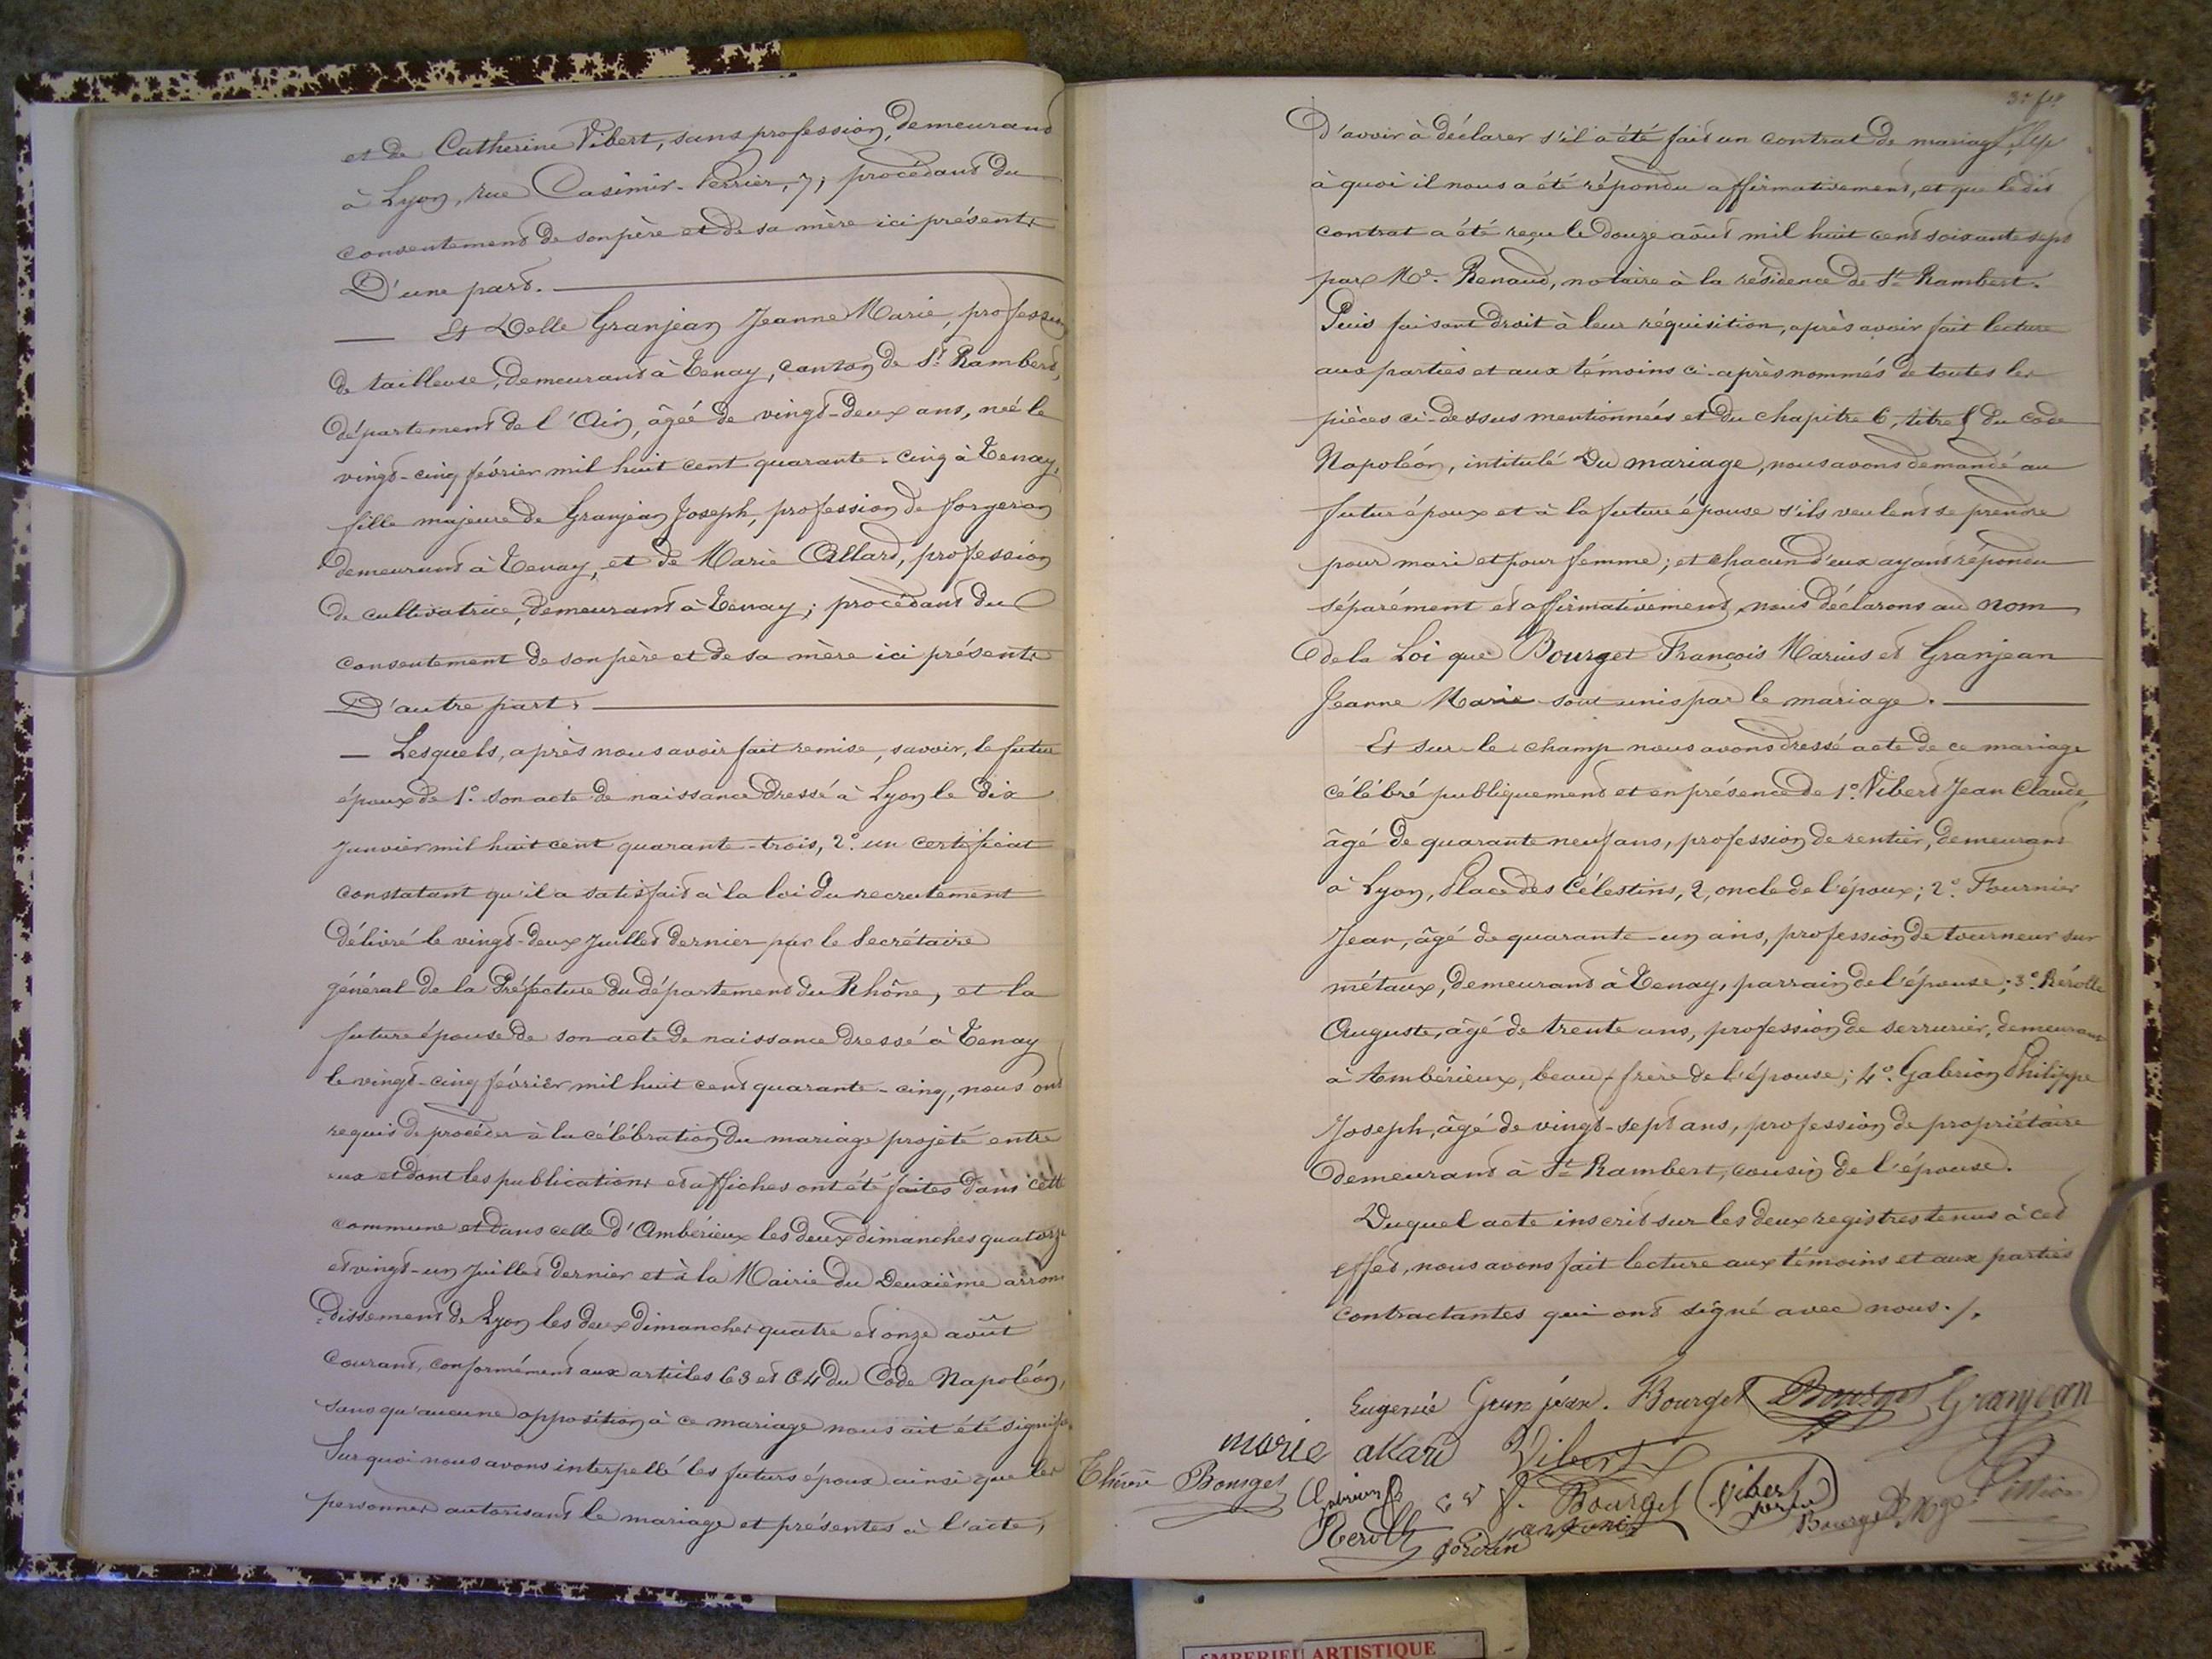 et de Catherine Vibert, sans profession, demeurant
à Lyon, rue Casimir-Perrier, 7; procédant du
consentement de son père et de sa mère ici présents
D'une part.
Et Delle Granjean Jeanne Marie, profession
de tailleuse, demeurant à Tenay, canton de St. Rambert,
département de l'Ain, âgée de vingt-deux ans, née le
vingt-cinq février mil huit cent quarante-cinq à Tenay,
fille majeure de Granjean Joseph, profession de forgeron
demeurant à Tenay, et de Marie Allard, profession
de cultivatrice, demeurant à Tenay; procédant du
consentement de son père et de sa mère ici présents
D'autre part.
Lesquels, après nous avoir fait remise, savoir, le futur
époux de 1° son acte de naissance dressé à Lyon le dix
Janvier mil huit cent quarante-trois, 2° un certificat
constatant qu'il a satisfait à la loi du recrutement
délivré le vingt-deux Juillet dernier par le Secrétaire
général de la Préfecture du département du Rhône, et la
future épouse de son acte de naissance dressé à Tenay
le vingt-cinq février mil huit cent quarante-cinq, nous ont
requis de procéder à la célébration du mariage projeté entre
eux et dont les publications et affiches ont été faites dans cette
commune et dans celle d'Ambérieux les deux dimanches quatorze
et vingt-un Juillet dernier et à la Mairie du Deuxième arron
dissement de Lyon les deux dimanches quatre et onze août
courant, conformément aux articles 63 et 64 du Code Napoléon,
sans qu'aucune opposition à ce mariage nous ait été signifiée
Sur quoi nous avons interpellé les futurs époux ainsi que les
personnes autorisant le mariage et présentes à l'acte,
D'avoir à déclarer s'il a été fait un contrat de mariage,
à quoi il nous a été répondu affirmativement, et que ledit
contrat a été reçu le douze août mil huit cent soixante sept
par Me. Renaud, notaire à la résidence de St Rambert.
Puis faisant droit à leur réquisition, après avoir fait lecture
aux parties et aux témoins ci-après nommés de toutes les
pièces ci-dessus mentionnées et du chapitre 6, titre 5 du code
Napoléon, intitulé Du mariage, nous avons demandé au
futur époux et à la future épouse s'ils veulent se prendre
pour mari et pour femme; et chacun d'eux ayant répondu
séparément et affirmativement, nous déclarons au nom
de la Loi que Bourget François Marius et Granjean
Jeanne Marie sont unis par le mariage.
Et sur-le champ nous avons dressé acte de ce mariage
célébré publiquement et en présence de 1° Vibert Jean Claude,
âgé de quarante neuf ans, profession de rentier, demeurant
à Lyon, Place des Célestins, 2, oncle de l'époux; 2° Fournier
Jean, âgé de quarante-un ans, profession de tourneur sur
métaux, demeurant à Tenay, parrain de l'épouse; 3° Rérolle
Auguste, âgé de trente ans, profession de serrurier, demeurant
à Ambérieux, beau-frère de l'épouse; 4° Gabrion Philippe
Joseph, âgé de vingt-sept ans, profession de propriétaire
demeurant à St Rambert, cousin de l'épouse.
Duquel acte inscrit sur les deux registres tenus à cet
effet, nous avons fait lecture aux témoins et aux parties
contractantes qui ont signé avec nous ./.
Eugenie Granjean. Bourget Bourget Granjean
marie allard Vibert
Thérèse Bourget Gabrion J. Bourget Vibert
Rerolle Bourget
AMBERIEU ARTISTIQUE